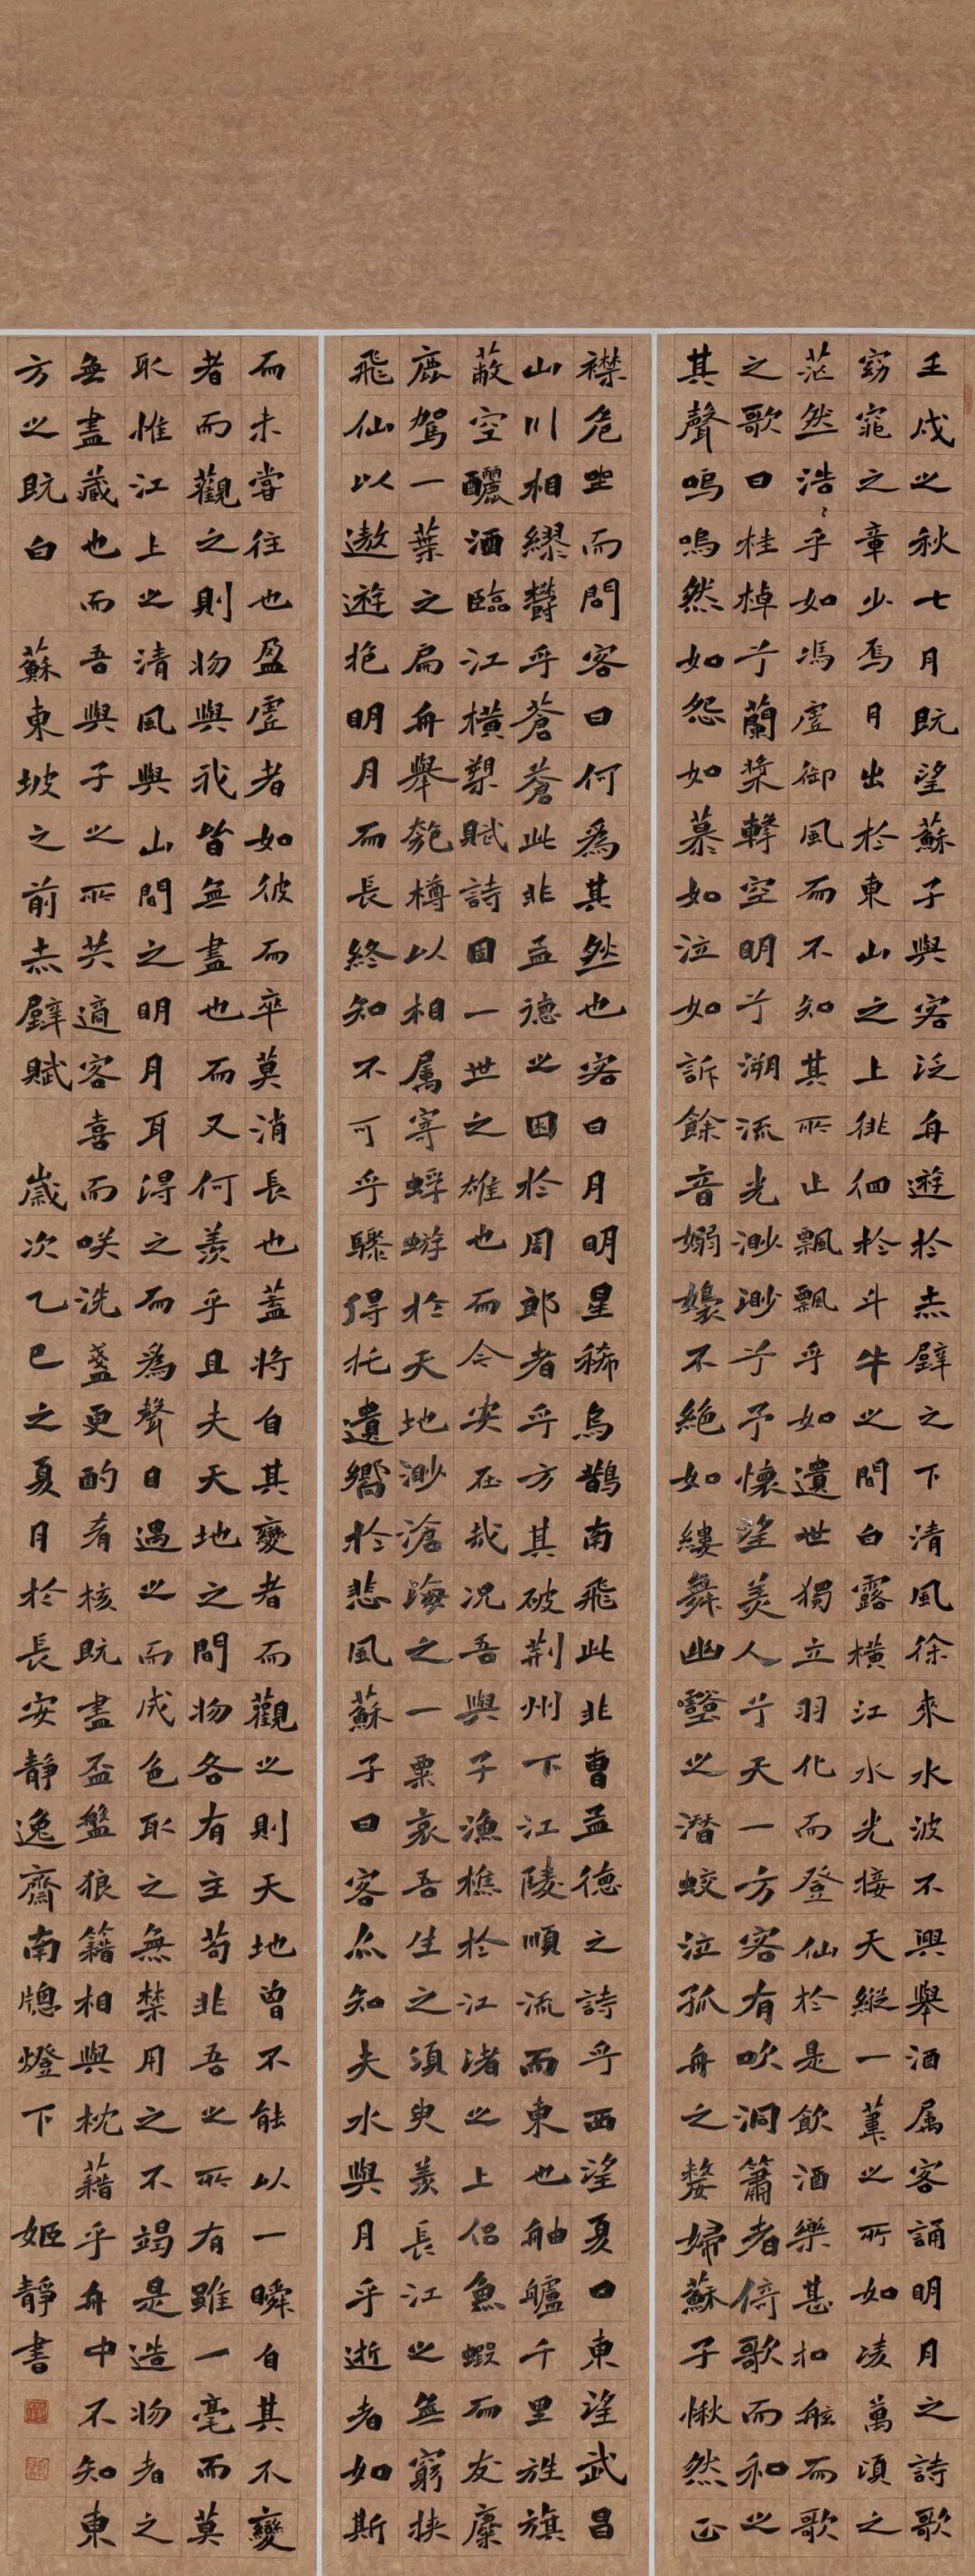 壬戌之秋七月既望蘇子與客泛舟遊於赤壁之下清風徐來水波不興舉酒属客誦明月之詩歌
窈窕之章少焉月出於東山之上徘徊於斗牛之間白露橫江水光接天縱一葦之所如凌萬頃之
茫然浩〻乎如馮虛御風而不知其所止飄飄乎如遺世獨立羽化而登仙於是飲酒樂甚扣舷而歌
之歌曰桂棹兮蘭槳擊空明兮溯流光渺渺兮予懷望美人兮天一方客有吹洞簫者倚歌而和之
其聲嗚嗚然如怨如慕如泣如訴餘音嫋嬝不絕如縷舞幽壑之潛蛟泣孤舟之嫠婦蘇子愀然正
襟危坐而問客曰何為其然也客曰月明星稀烏鵲南飛此非曹孟德之詩乎西望夏口東望武昌
山川相繆鬱乎蒼蒼此非孟德之困於周郎者乎方其破荆州下江陵順流而東也舳艫千里旌旗
蔽空釃酒臨江橫槊賦詩固一世之雄也而今安在哉況吾與子漁樵於江渚之上侶魚蝦而友麋
鹿駕一葉之扁舟舉匏樽以相属寄蜉蝣於天地渺滄海之一粟哀吾生之須臾羨長江之無窮挾
飛仙以遨遊抱明月而長終知不可乎驟得托遺響於悲風蘇子曰客亦知夫水與月乎逝者如斯
而未嘗往也盈虛者如彼而卒莫消長也蓋將自其變者而觀之則天地曾不能以一瞬自其不變
者而觀之則物與我皆無盡也而又何羨乎且夫天地之間物各有主苟非吾之所有雖一毫而莫
取惟江上之清風與山間之明月耳得之而為聲目遇之而成色取之無禁用之不竭是造物者之
無盡藏也而吾與子之所共適客喜而咲洗盞更酌肴核既盡盃盤狼籍相與枕藉乎舟中不知東
方之既白 蘇東坡之前赤壁賦 歲次乙巳之夏月於長安靜逸齋南牕燈下 姬靜書